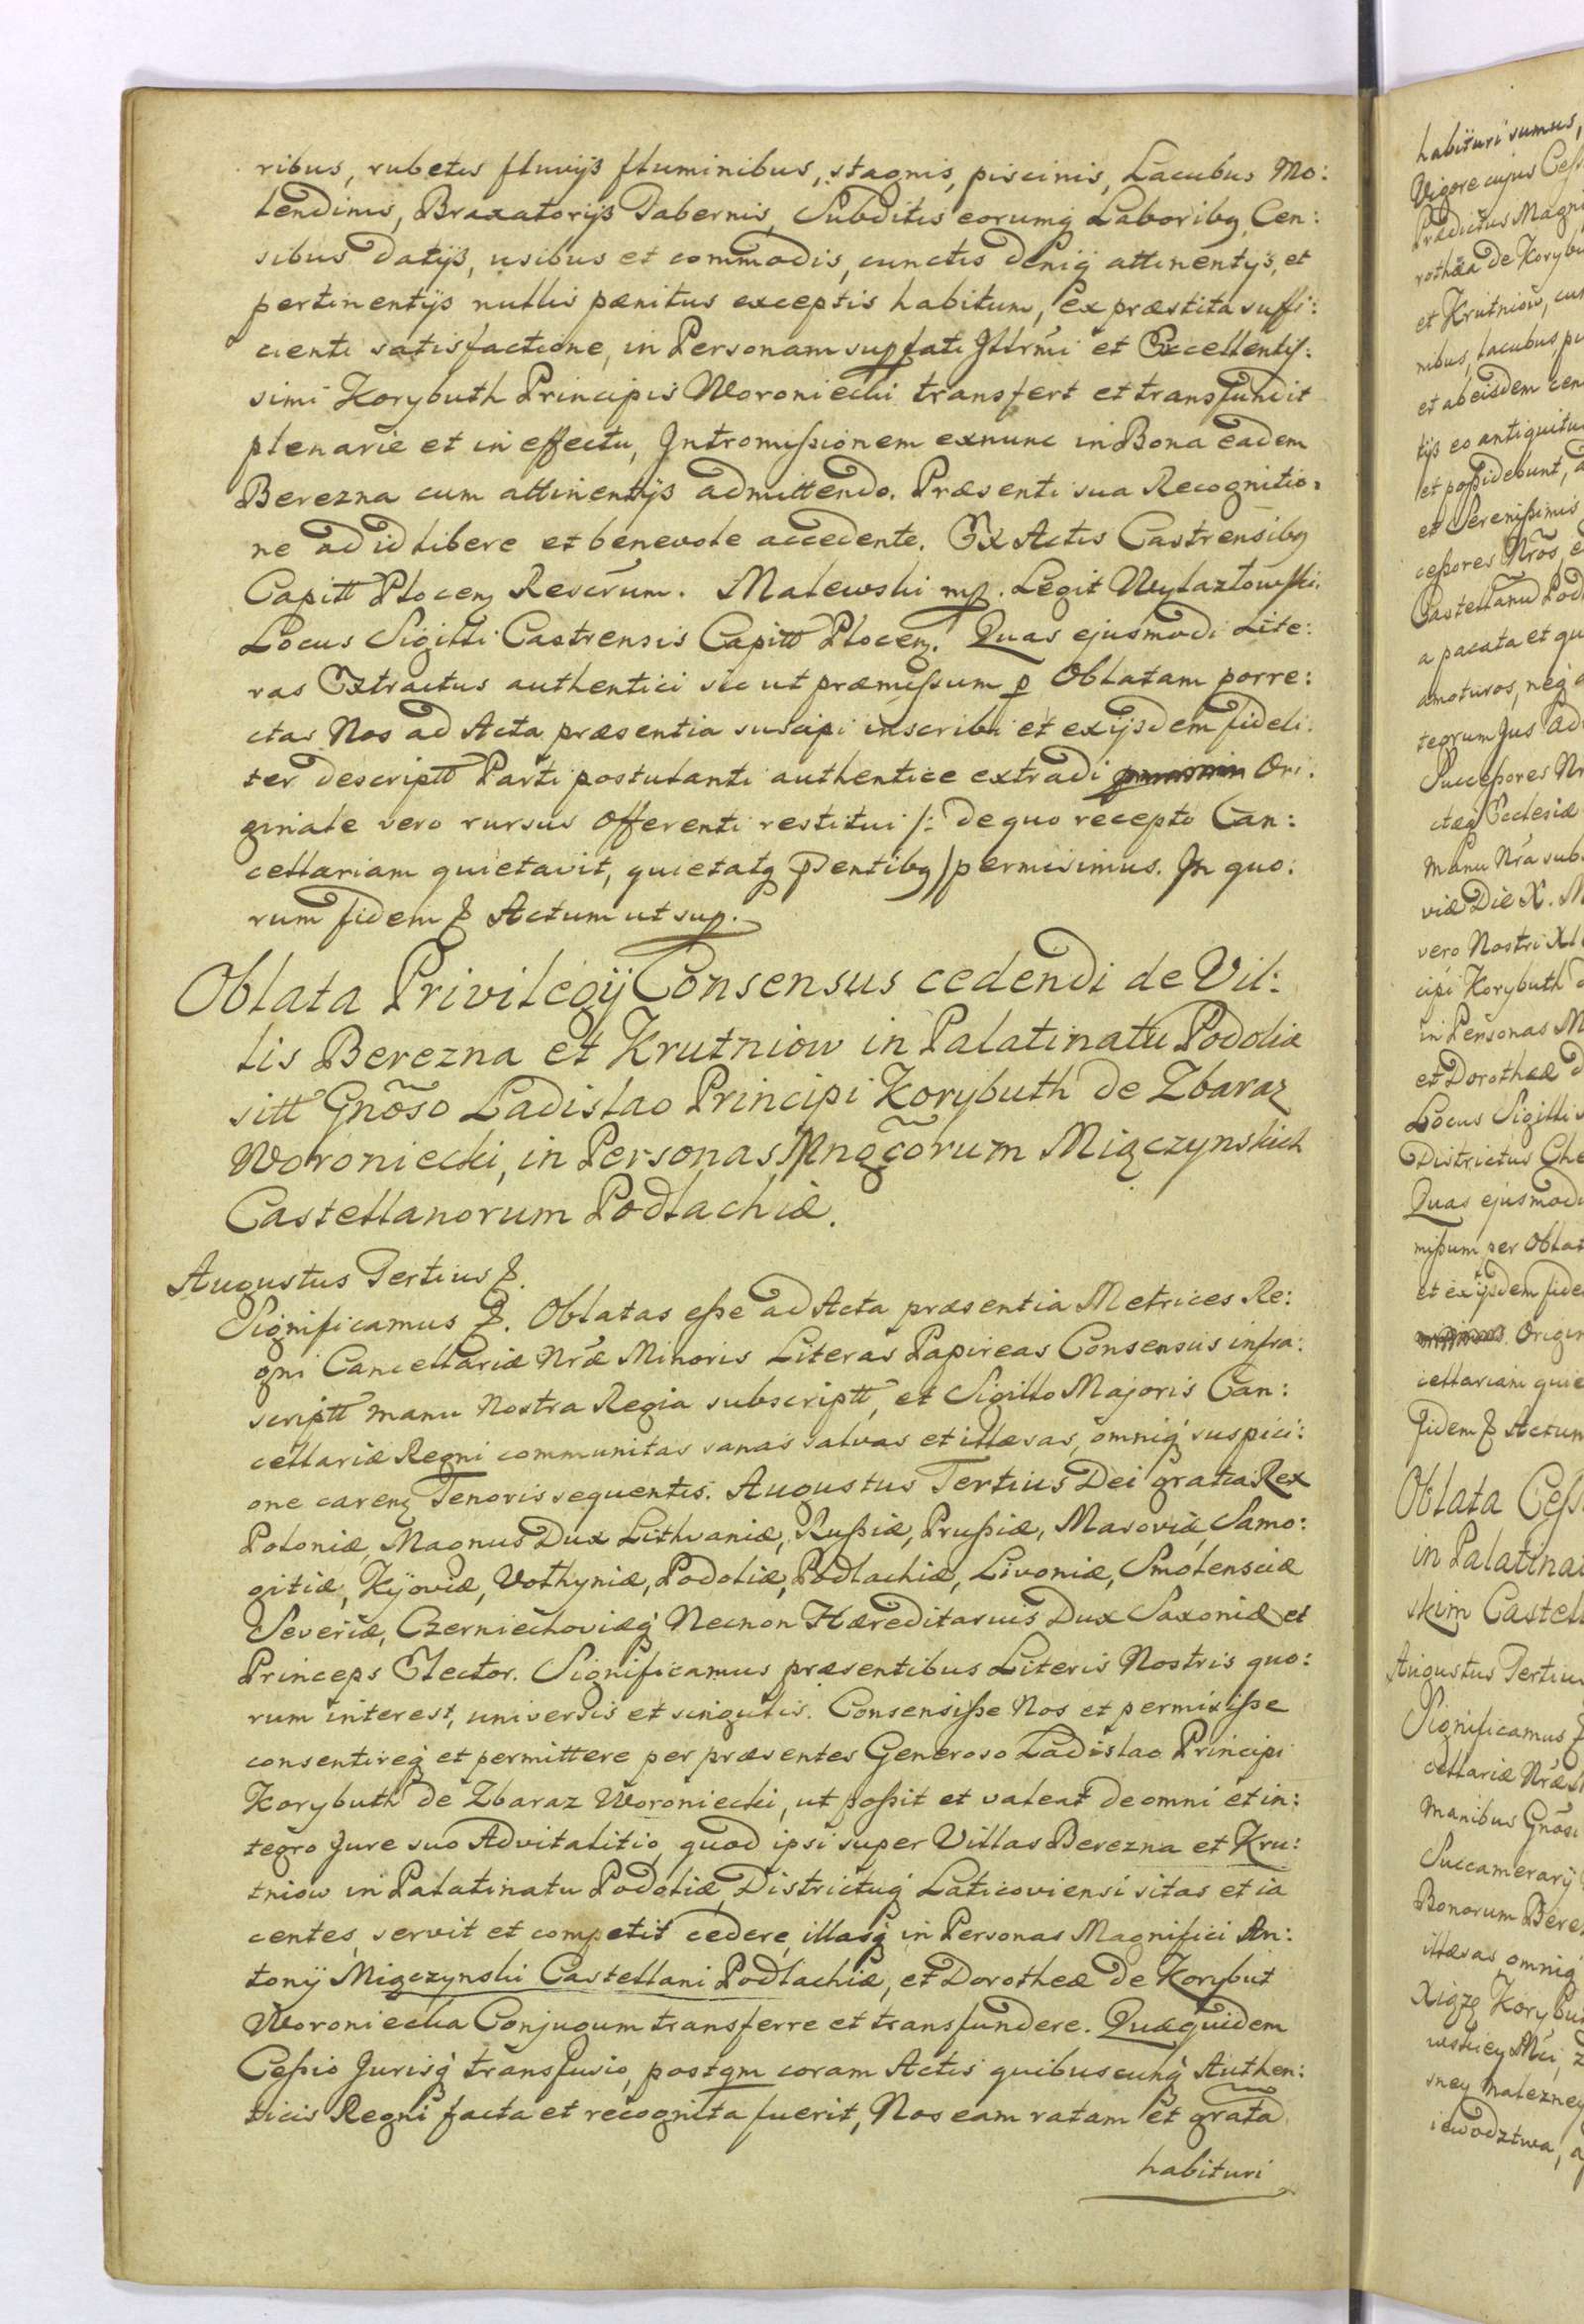 ribus, rubetis fluvijs fluminibus, stagnis, piscinis, Lacubus Mo:
lendinis, Braxatorijs Tabernis, Subditis eorumq̃ Laboribq, Cen:
sibus datijs, usibus et commodis, cunctis deniq̃ attinentijs, et
pertinentijs nullis pænitus exceptis habitum, ex præstita suffi:
cienti satisfactione, in Personam supfati Jllrmi et Excellentiſ:
simi Korybuth Principis Woroniecki transfert et transfundit
plenarie et in effectu, Jntromiſsionem exnunc in Bona eadem
Berezna cum attinentijs admittendo. Præsenti sua Recognitio:
ne ad id libere et benevole accedente. Ex Actis Castrensibq
Capitt Plocenz Rescrum. Malewski mp. Legit Wylazłowski.
Locus Sigilli Castrensis Capitt Plocenz. Quas ejusmodi Lite:
ras Extractus authentici sic ut præmiſsum p Oblatam porre:
ctas Nos ad Acta præsentia suscipi inscribi et exijsdem fideli:
ter descriptt Parti postulanti authentice extradi Ori:
ginale vero rursus Offerenti restitui /: de quo recepto Can:
cellariam quietavit, quietatq pſentibq / permisimus. Jn quo:
rum fidem &. Actum ut sup.
Oblata Privilegij Consensus cedendi de Vil:
lis Berezna et Krutniow in Palatinatu Podoliæ
sitt Gnõso Ladislao Principi Korybuth de Zbaraz
Woroniecki, in Personas Mngc̃orum Miączynskich
Castellanorum Podlachiæ.
Augustus Tertius &.
Significamus &. Oblatas eſse ad Acta præsentia Metrices Re:
gni Cancellariæ Nræ Minoris Literas Papireas Consensus infra:
scriptt manu Nostra Regia subscriptt, et Sigillo Majoris Can:
cellariæ Regni communitas sanas salvas et illæsas, omniq̃ suspici:
one carenz Tenoris sequentis. Augustus Tertius Dei gratia Rex
Poloniæ, Magnus Dux Lithvaniæ, Ruſsiæ, Pruſsiæ, Masoviæ, Samo:
gitiæ, Kijoviæ, Volhyniæ, Podoliæ, Podlachiæ, Livoniæ, Smolensciæ
Severiæ, Czerniechoviæq̃ Necnon Hæreditarius Dux Saxoniæ et
Princeps Elector. Significamus præsentibus Literis Nostris quo:
rum interest, universis et singulis. Consensiſse Nos et permisiſse
consentireq̃ et permittere per præsentes Generoso Ladislao Principi
Korybuth de Zbaraz Woroniecki, ut poſsit et valeat de omni et in:
tegro Jure suo Advitalitio, quod ipsi super Villas Berezna et Kru:
tniow in Palatinatu Podoliæ, Districtuq̃ Laticoviensi sitas et ia
centes, servit et competit cedere, illasq̃ in Personas Magnifici An:
tonij Miączynski Castellani Podlachiæ, et Dorotheæ de Korybut
Woroniecka Conjugum transferre et transfundere. Quæquidem
Ceſsio Jurisq̃ transfusio, postqm coram Actis quibuscunq̃ Authen:
ticis Regni facta et recognita fuerit, Nos eam ratam et grata
habituri
habituri sumus,
Vigore cujus Ceſs
Prædictus Magni
rothæa de Korybu
et Krutniow, cu
nibus, lacubus, pi
et ab eisdem cen
tijs eo antiquitu
et poſsidebunt, a
et Sereniſsimis
ceſsores Nrõs, e
Castellanũ Podl
a pacata et qu
amoturos, neq̃ a
tegrum Jus Ad
Succeſsores Nr
ctæq̃ Ecclesiæ
manu Nrã sub
viæ Die X. M
vero Nostri XI
cipi Korybuth d
in Personas M
et Dorotheæ d
Locus Sigilli
Districtus Che
Quas ejusmodi
miſsum per Oblat
et exijsdem fide
Origin
cellariam quie
fidem &. Actum
Oblata Ceſs
in Palatina
skim Castell
Augustus Tertius
Significamus &
cellariæ Nræ
manibus Gnõsi
Succamerarij
Bonorum Berez
illæsas, omniq̃
Xiążę Korybut
sney małezney
iewodztwa, a